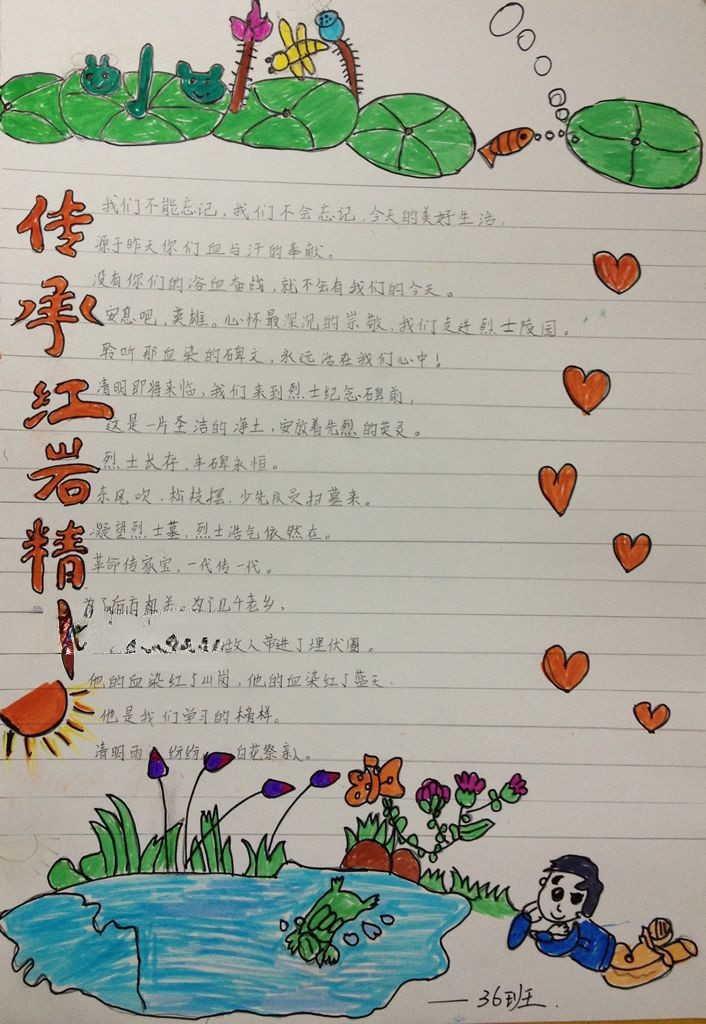 传承红岩精
我们不能忘记，我们不会忘记，今天的美好生活，
源于昨天你们血与汗的奉献。
没有你们的浴血奋战，就不会有我们的今天。
安息吧，英雄。心怀最深沉的崇敬，我们走进烈士陵园。
聆听那血染的碑文，永远活在我们心中！
清明即将来临，我们来到烈士纪念碑前，
这是一片圣洁的净土，安放着先烈的英灵。
烈士长存、丰碑永恒。
东风吹，松枝摆，少先队员扫墓来。
凝望烈士墓，烈士浩气依然在。
革命传家宝，一代传一代。
为了几千老乡，
敌人带进了埋伏圈。
他的血染红了山岗，他的血染红了蓝天，
他是我们学习的榜样。
清明雨 纷纷 白花祭亲人。
——36班